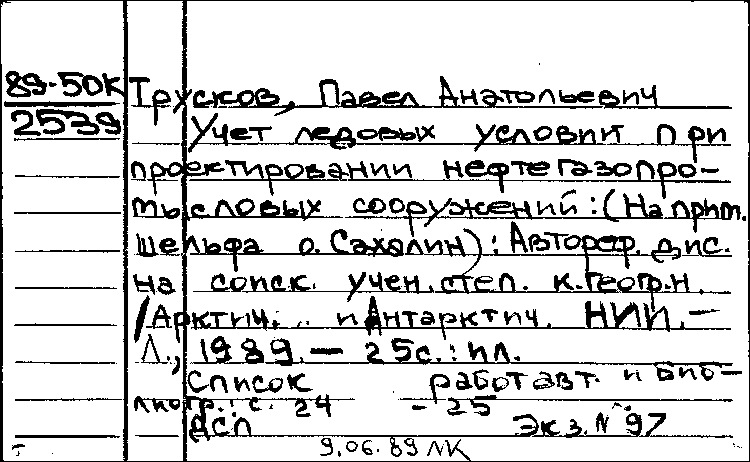 89-50К Трусков, Павел Анатольевич
2539 Учет ледовых условий при
проектировании нефтегазопро-
мысловых сооружений: (На прим.
шельфа о. Сахалин): Автореф. дис.
на соиск. учен. степ. к.геогр.н.
/Арктич. и Антарктич. НИИ. —
Л., 1989. — 25с.: ил.
Список работ авт. и биб-
лиогр.: с. 24 - 25
ДСП Экз. N 97
9.06.89 NK